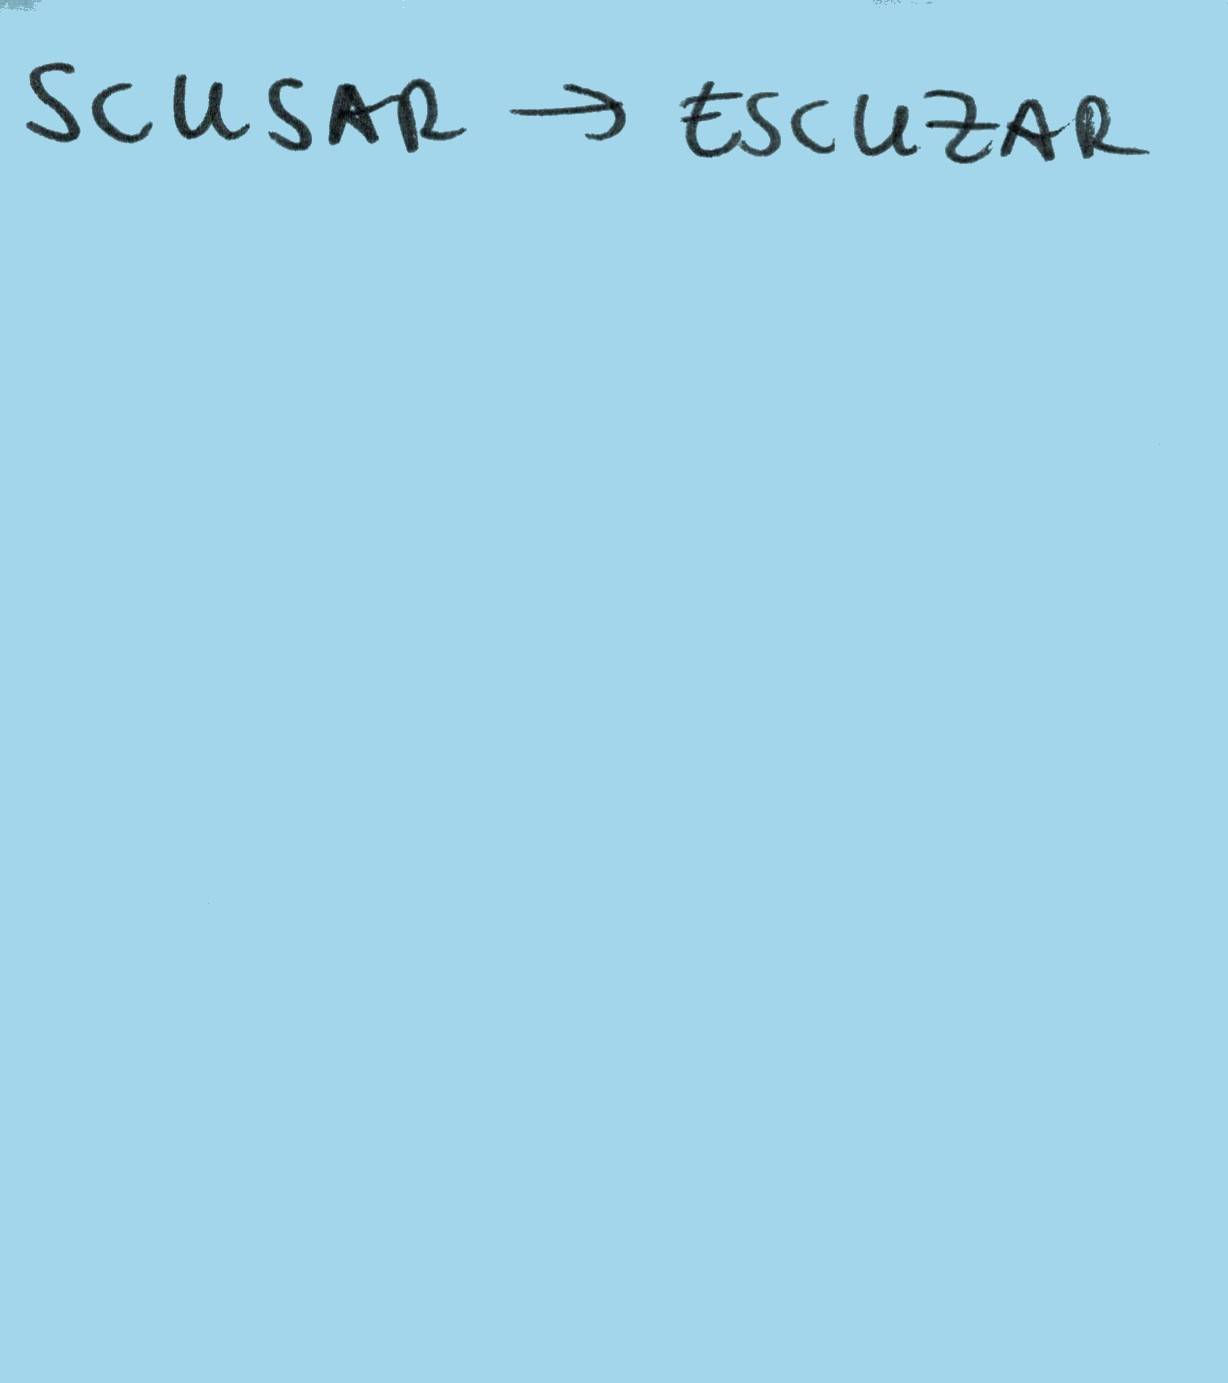 SCUSAR → ESCUZAR